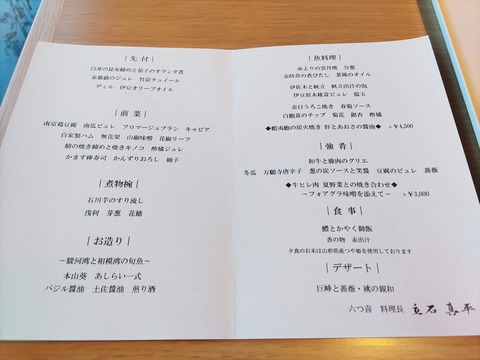 ｜先 付｜
白身の昆布締めと茄子のオランダ煮
赤紫蘇のジュレ 竹炭チュイール
ディル 伊豆オリーブオイル
｜前 菜｜
南京葛豆腐 南瓜ピュレ フロマージュブラン キャビア
自家製ハム 無花果 山椒味噌 花椒リーフ
鯖の焼き締めと焼きキノコ 酢橘ジュレ
かます棒寿司 かんずりおろし 柚子
｜煮物椀｜
石川芋のすり流し
浅利 芽葱 花穂
｜お造り｜
～駿河湾と相模湾の旬魚～
本山葵 あしらい一式
バジル醤油 土佐醤油 煎り酒
｜魚料理｜
赤よりの雲丹焼 分葱
金時草の煮びたし 菜種のオイル
伊佐木と帆立 帆立出汁の泡
伊豆原木椎茸ピュレ 塩玉
金目うろこ焼き 春菊ソース
白鮑茸のチップ 菊花 銀杏 酢橘
◆蝦夷鮑の炭火焼き 肝とあおさの醬油◆ +￥4,500
｜強 肴｜
和牛と鹿肉のグリエ
冬瓜 万願寺唐辛子 葱の炭ソースと笑醤 豆腐のピュレ 薔薇
◆牛ヒレ肉 夏野菜との焼き合わせ◆
～フォアグラ味噌を添えて～ +￥3,000
｜食 事｜
鱧とかやく御飯
香の物 赤出汁
夕食のお米は山形県産つや姫を使用しております
｜デザート｜
巨峰と薔薇・桃の親和
六つ喜 料理長 立石 真平